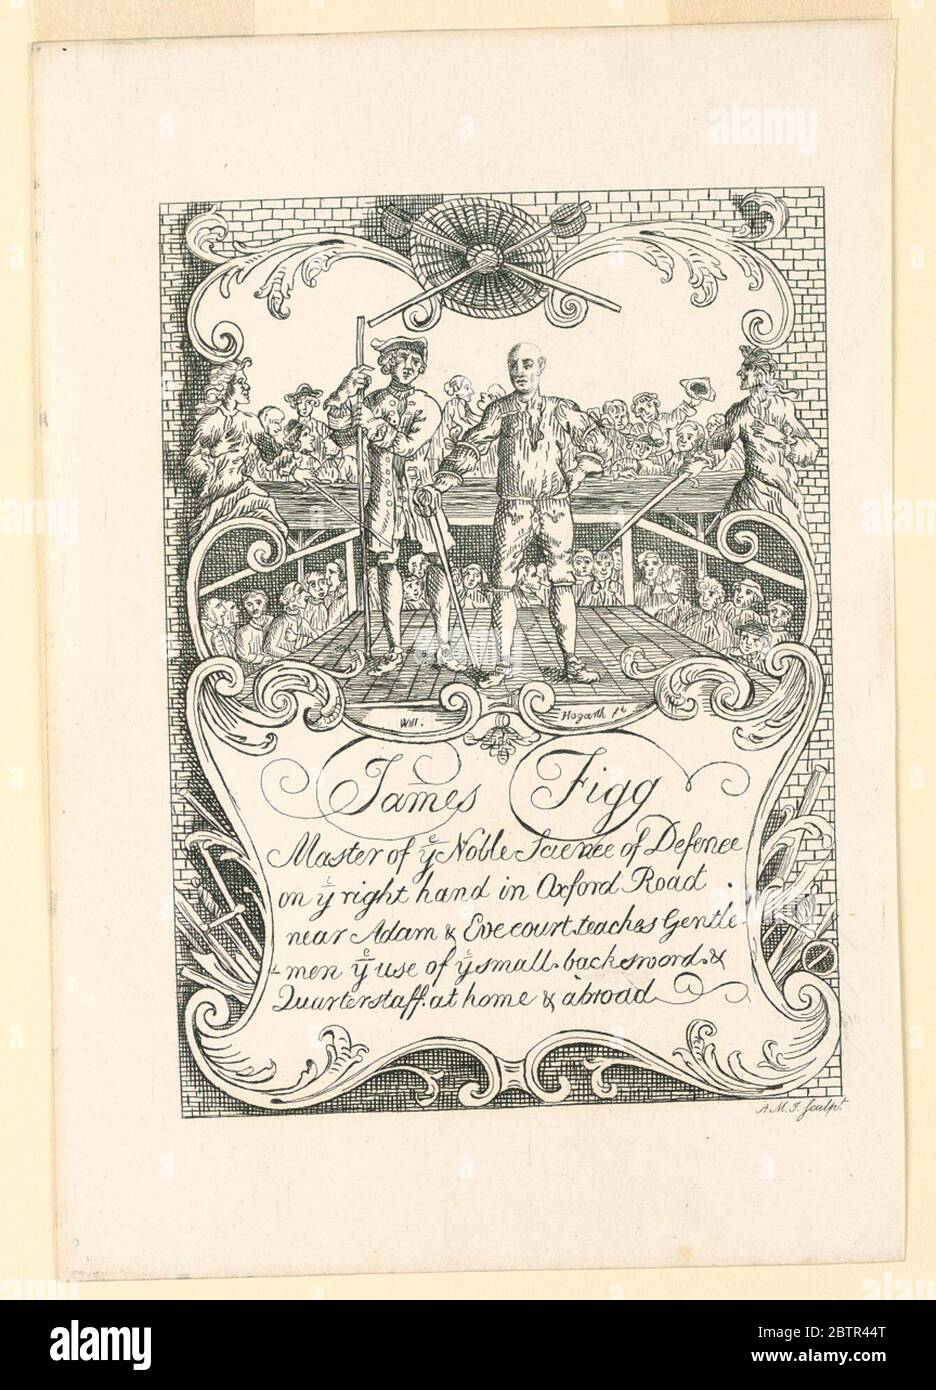 alamy
Will.
Hogarth ft
James Figg
Master of yͤ Noble Science of Defence
on yͤ right hand in Oxford Road
near Adam & Eve court teaches Gentle-
-men yͤ use of yͤ small backsword &
Quarterstaff at home & abroad
A.M.I. Sculpt.
alamy
Image ID: 2BTR44T
www.alamy.com